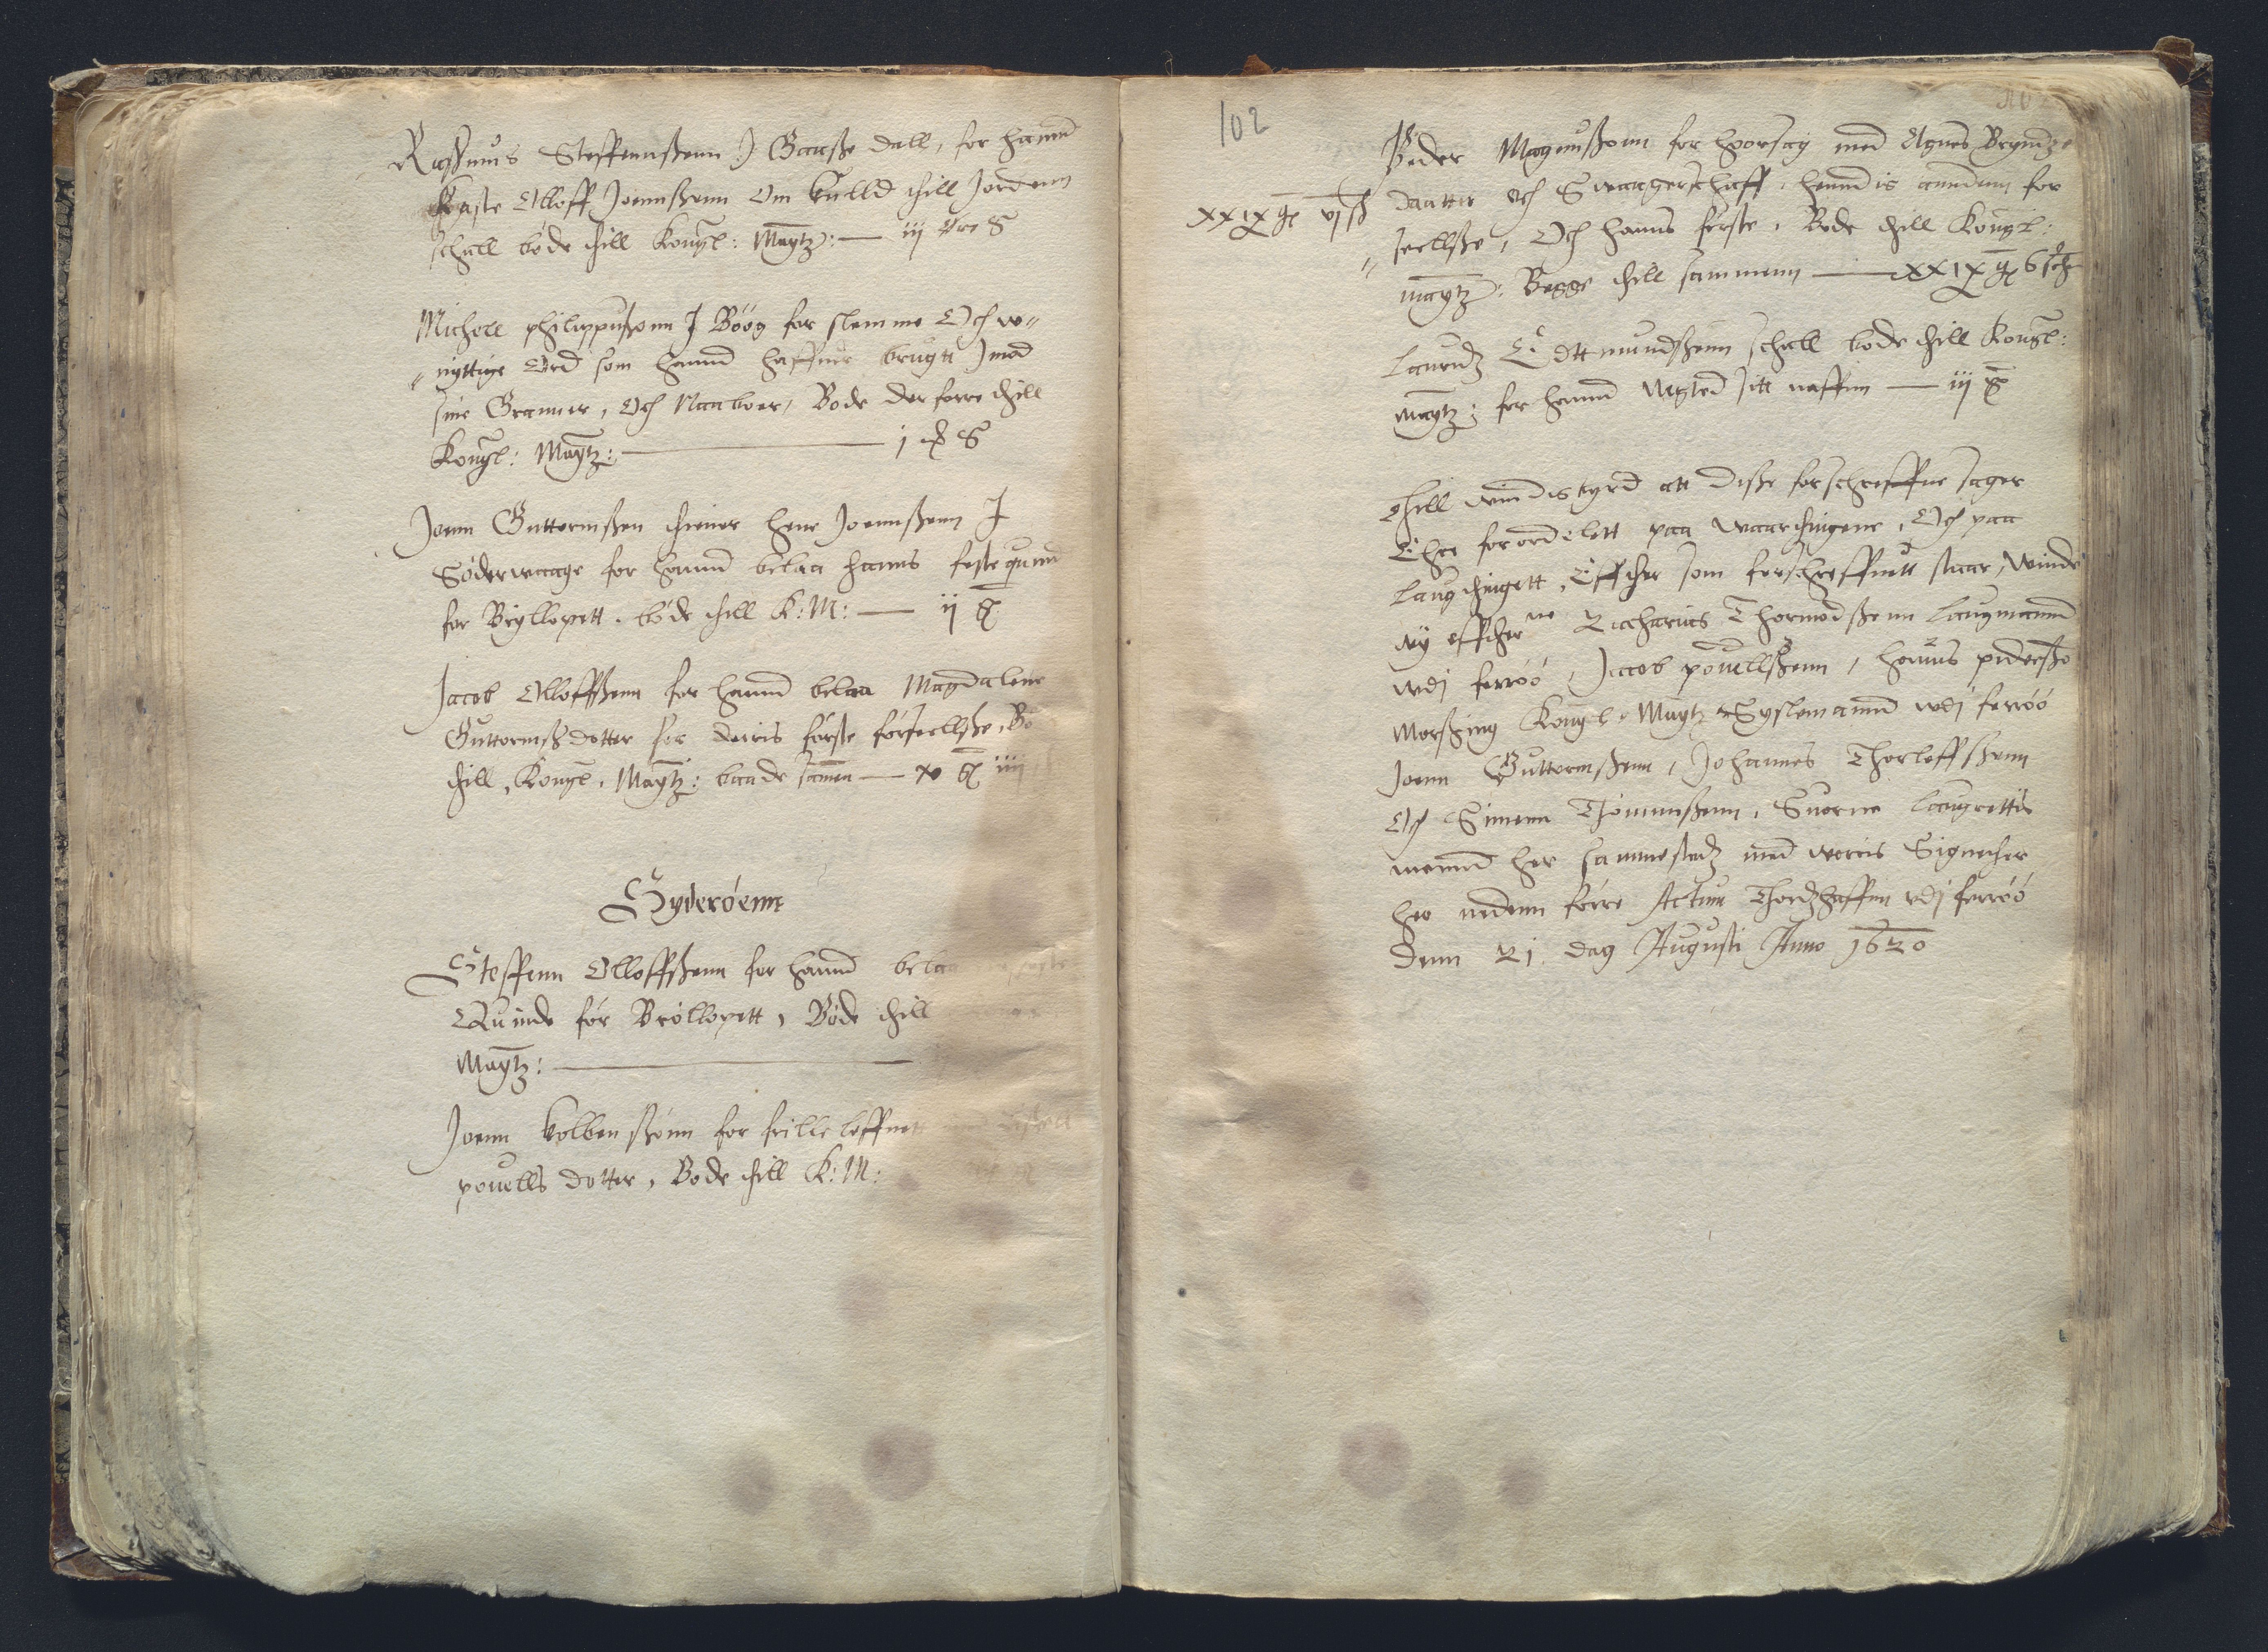 Rasmus Steffennßenn J Gaaße dall, for hannd
kaste Olloff Joennßenn Om kulld thill Jordenn
schall böde thill Konngl: Maytz: — iij öre S
Michell philippußonn J Böög for slemme Och w-
nyttige Ord som hannd haffuer brugtt Jmod
sine Granner, Och Naaboer, Bode der forre thill
Konngl: Maytz: — j
Joenn Guttormßen thiener hene Joennßenn J
Söderwaage for hannd belaa hanns feste quind
for Bryllopett. böde thill K: M: — ij
Jacob Olloffßenn for hannd belaa Magdalene
Guttormßdotter for deiris förste forseellße, Bö
thill, Konngl, Maytz: baade samen — x iiij
Syderöenn
Steffenn Olloffßenn for hannd belaa feste
Quinde för Bröllopett, Böde thill
Maytz: —
Joenn kolbenßönn for frille leffnett
pouells dotter, Bode thill K: M:
102
Peder Magnußonn for hoorsag med Agnes Brynndz
daatter Och Swaagerschaff, henndis anndenn for
xxix vj ß
seellße, Och hanns förste, Bode thill Konngl:
maytz: Begge thill sammenn — xxix 6
Lauridz Edttmundßenn schall bode thill Konngl:
maytz: for hannd Misted sitt naffn — iij
Thill windisbyrd att diße forschreffne sager
Ehre forordelett paa waarthingene, Och paa
Laugthingett, Effther som forschreffuett staar, winde
wy effther ne Zacharias Thormodßenn Laugmannd
wdj ferröö, Jacob pouellßenn, hanns pederßö
Morßing Konngl. Maytz Sysslemannd wdj ferröö
Joenn Guttormßenn, Johannes Thorleffßenn
Och Simenn Thommßenn, Suorne Laugrettis
mennd her sammestedz med woris Signether
her nedenn förre Actum Thordzhaffnn wdj ferröö
denn 21. dag Augusti Anno 1620